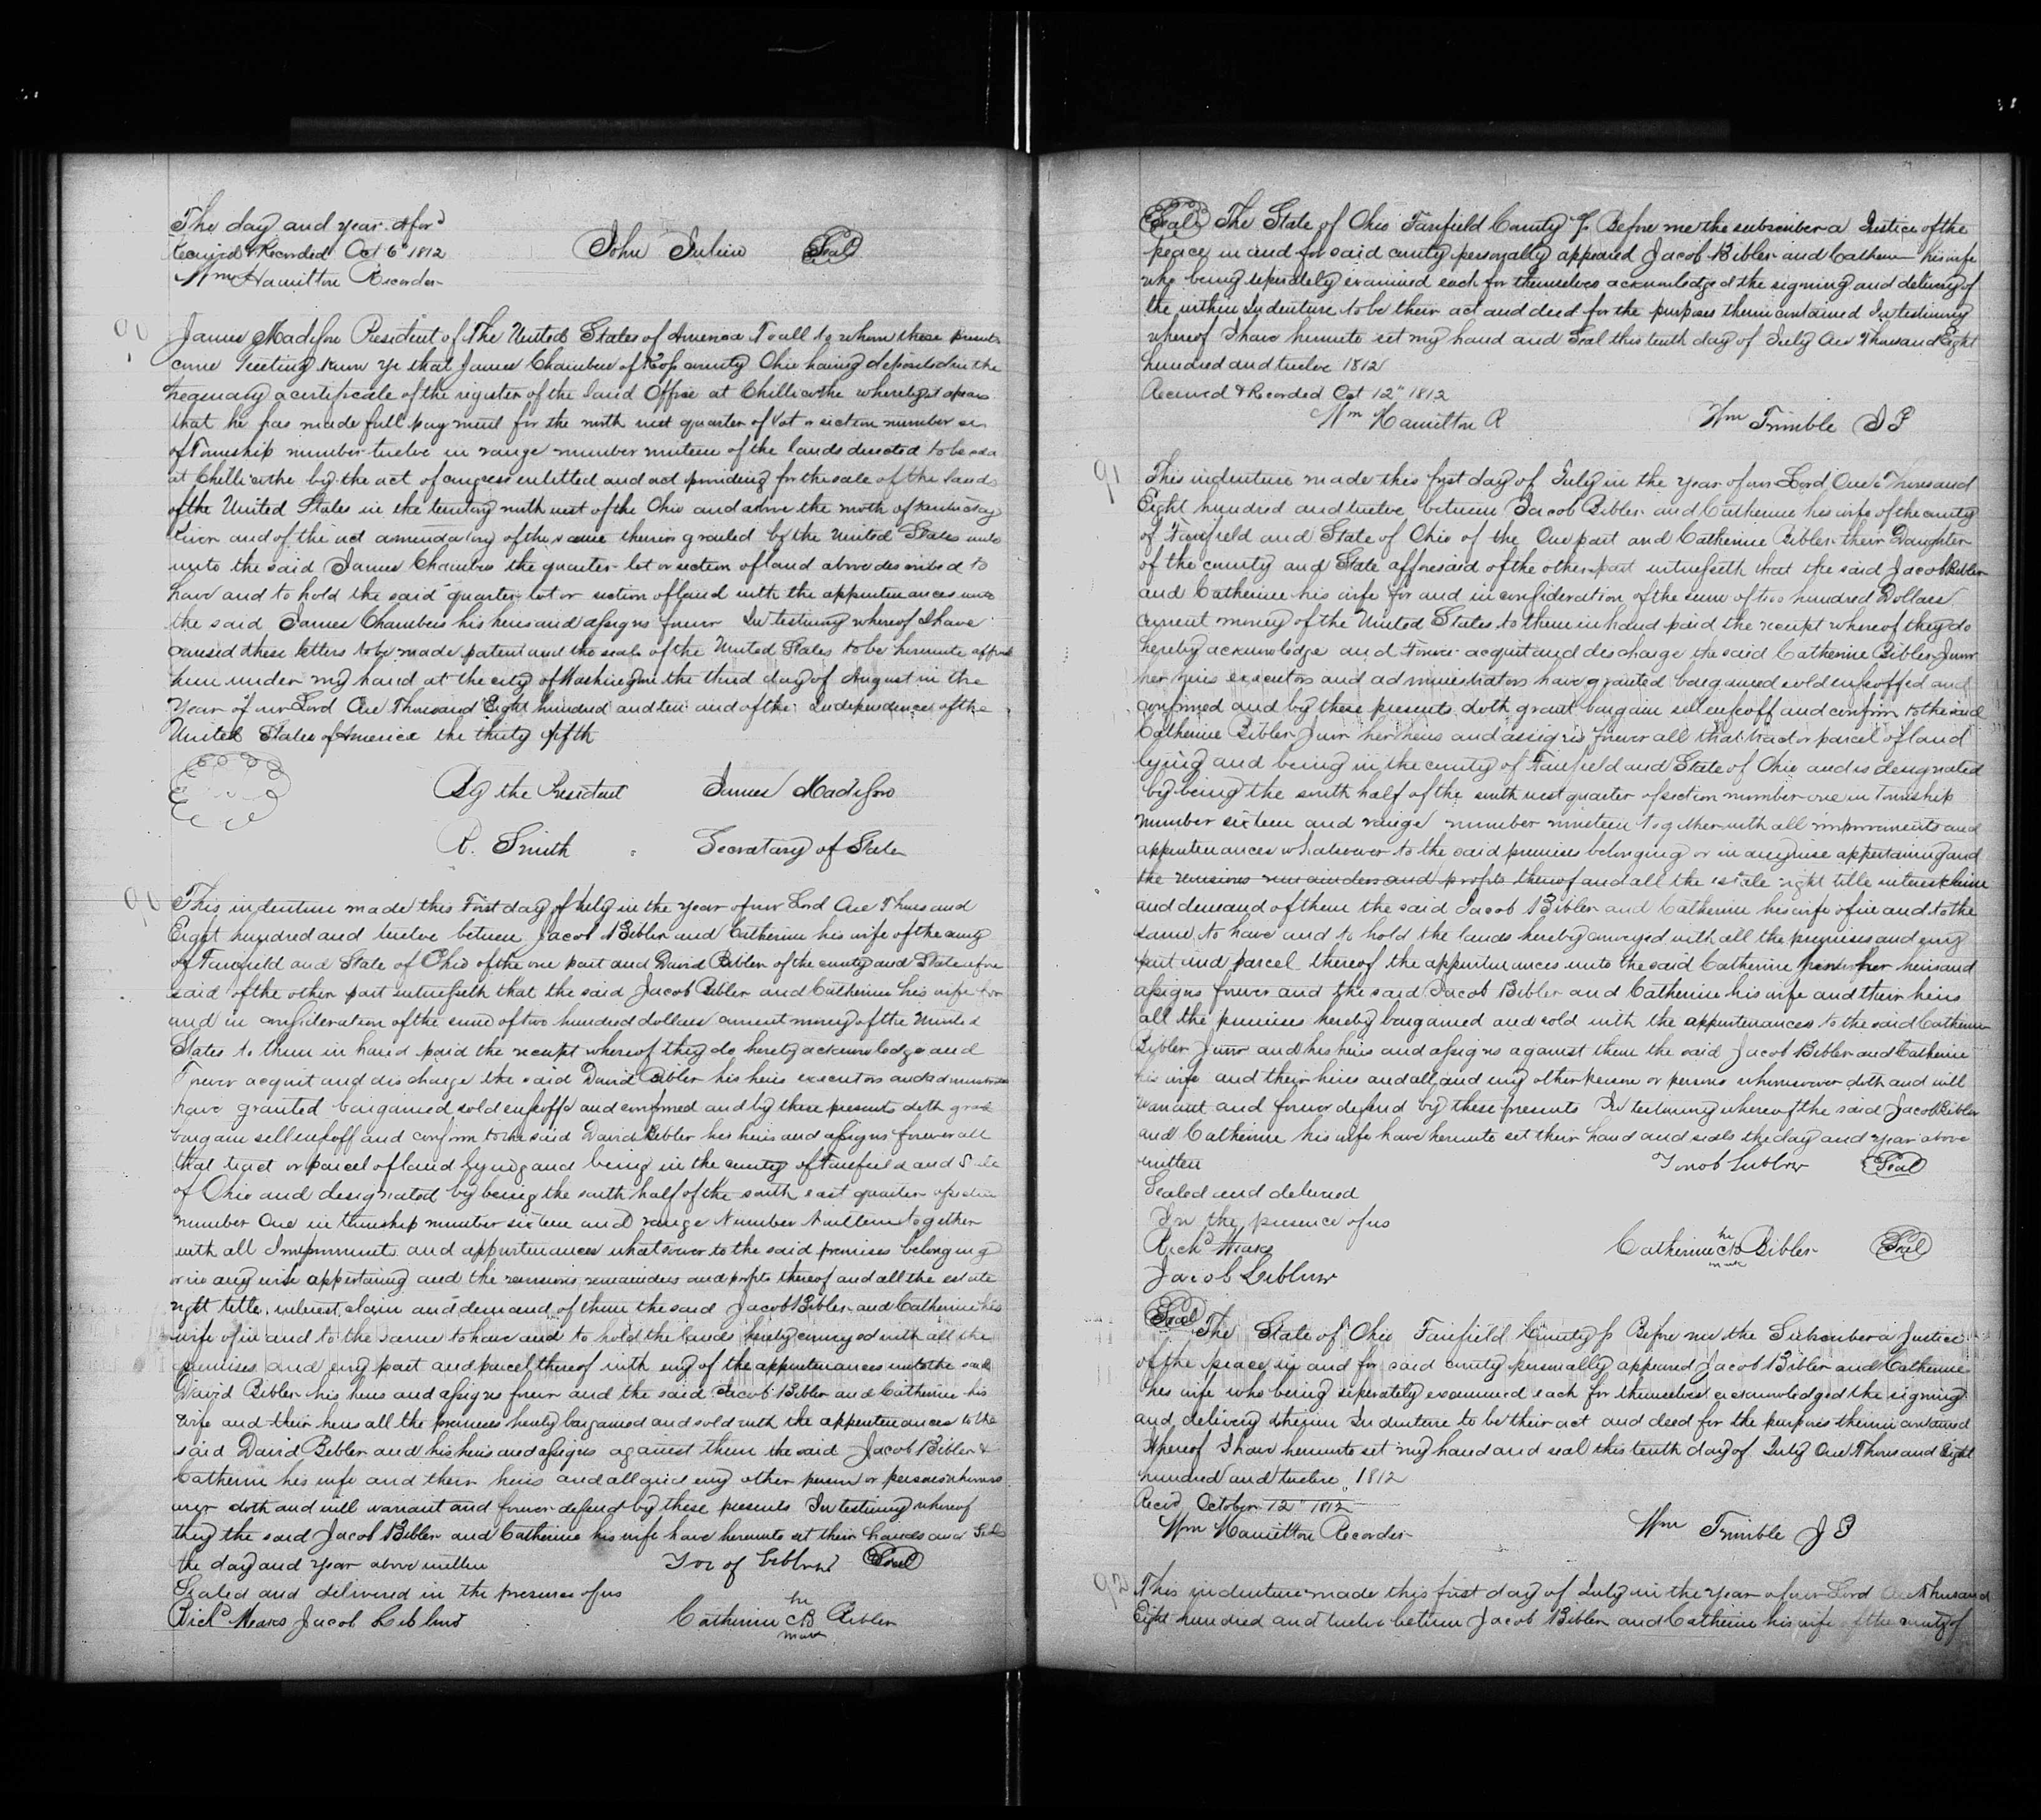 The day and year afor^d
Received & Recorded Oct 6" 1812
John Julien Seal
Wm Hamilton Recorder
90
James Madison President of The United States of America To all to whom these presents
come Greeting Know ye that James Chambers of Ross county Ohio having deposited in the
Tregeuary a certificate of the register of the land Office at Chillicothe whereby it apears
that he has made full payment for the north west quarter of lot or section number
of Township number twelve in range number ninteen of the lands directed to be
at Chillicothe by the act of congress intitled and act providing for the sale of the lands
of the United States in the territory north west of the Ohio and above the moth of Kentuckey
River and of the act amendatory of the same therein granted by the United States unto
unto the said James Chambers the quarter lot or section of land above described to
have and to hold the said quarter lot or section of land with the appurtenances unto
the said James Chambers his heirs and assigns forever In testimony whereof I have
caused these letters to be made patent and the seale of the United States to be hereunto
under my hand at the city of Washington the third day of August in the
Year of our Lord One Thousand Eight hundred and ten and of the Independence of the
United States of America the thirty fifth
By the President James Madison
R. Smith Secratary of State
90
This indenture made this First day of July in the year of our Lord One Thousand
Eight hundred and twelve between Jacob Bibler and Catherine his wife of the county
of Fairfield and State of Ohio of the one part and David Bibler of the county and State afore
said of the other part witnesseth that the said Jacob Bibler and Catherine his wife for
and in consideration of the sum of two hundred dollars current money of the United
States to them in hand paid the receipt whereof they do hereby acknowledge and
Forever acquit and discharge the said David Bibler his heirs executors and administrators
have granted bargained sold enfeoffd and confirmed and by these presents doth
bargain sell enfeoff and confirm to the said David Bibler his heirs and assigns forever all
that tract or parcel of land lying and being in the county of Fairfield and State
of Ohio and designated by being the south half of the south east quarter of section
number One in township number sixteen and range Number Ninteen together
with all Improvments and appurtenances whatsoever to the said premises belonging
or in any wise appertaining and the reversions remainders and profits thereof and all the estate
right title interest claim and demand of them the said Jacob Bibler and Catherine his
wife of in and to the same to have and to hold the lands hereby conveyed with all the
premises and evry part and parcel thereof with evry of the appurtenances unto the said
David Bibler his heirs and assigns forever and the said Jacob Bibler and Catherine his
wife and their heirs all the premises hereby bargained and sold with the appertenances to the
said David Bibler and his heirs and assigns against them the said Jacob Bibler &
Catherine his wife and their heirs and all and evry other person or persons whomso
ever doth and will warrant and forever defend by these presents In testimony whereof
they the said Jacob Bibler and Catherine his wife have hereunto set their hands and
the day and year above written Seal
Sealed and delivered in the presence of us
Rich^d Mears Jacob Catherine CB Bibler
mark
Seal The State of Ohio Fairfield County ss Before me the subscriber a Justice of the
peace in and for said county personally appeared Jacob Bibler and Catherin his wife
who being seperately examined each for themselves acknowledged the signing and delivery of
the within Indenture to be their act and deed for the purposes therin contained In testimony
whereof I have hereunto set my hand and Seal this tenth day of July One Thousand Eight
hundred and twelve 1812
Received & Recorded Oct 12" 1812
Wm Hamilton R Wm Trimble J P
91
This indenture made this first day of July in the year of our Lord One Thousand
Eight hundred and twelve between Jacob Bibler and Catherine his wife of the county
of Fairfield and State of Ohio of the One part and Catherine Bibler their Daughter
of the county and State afforesaid of the other part witnesseth that the said Jacob Bibler
and Catherine his wife for and in consideration of the sum of two hundred Dollars
current money of the United States to them in hand paid the receipt whereof they do
hereby acknowledge and Forever acquit and discharge the said Catherine Bibler Junr
her heirs executors and administrators have granted bargained sold enfeoffed and
confirmed and by these presents doth grant bargain sell enfeoff and confirm to the said
Catherine Bibler Junr her heirs and assigns forever all that tract or parcel of land
lying and being in the county of Fairfield and State of Ohio and is designated
by being the south half of the south west quarter of section number one in Township
number sixteen and range number nineteen together with all improvments and
appurtenances whatsoever to the said premises belonging or in anywise appertaining and
the reversions remainders and profits thereof and all the estate right title interest claim
and demand of them the said Jacob Bibler and Catherine his wife of in and to the
same to have and to hold the lands hereby conveyed with all the premises and evry
part and parcel thereof the appurtenances unto the said Catherine her heirs and
assigns forever and the said Jacob Bibler and Catherine his wife and their heirs
all the premises hereby bargained and sold with the appurtenances to the said Catherine
Bibler Junr and his heirs and assigns against them the said Jacob Bibler and Catherine
his wife and their heirs and all and evry other person or persons whomsoever doth and will
warrant and forever defend by these presents In testimony whereof the said Jacob Bibler
and Catherine his wife have hereunto set their hand and seals the day and year above
written Seal
Sealed and delivered
In the presence of us
Rich^d Mears Catherine CB Bibler Seal
mark
Jacob
Seal The State of Ohio Fairfield County ss Before me the Subscriber a Justice
of the peace in and for said county personally appeared Jacob Bibler and Catherine
his wife who being seperately examined each for themselves acknowledged the signing
and delivery Indenture to be their act and deed for the purposes therein contained
Whereof I have hereunto set my hand and seal this tenth day of July One Thousand Eight
hundred and twelve 1812
Recvd October 12" 1812
Wm Hamilton Recorder Wm Trimble J P
92
This indenture made this first day of July in the year of our Lord One thousand
Eight hundred and twelve between Jacob Bibler and Catherine his wife of the county of